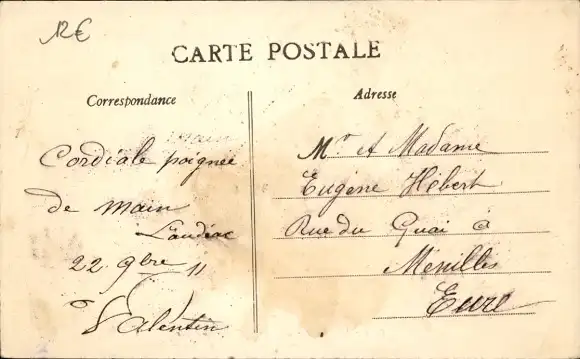 12€
CARTE POSTALE
Correspondance
Cordiale poignée
de main
Loudéac
22 9bre 11
Valentin
Adresse
Mr et Madame
Eugène Hébert
Rue du Quai à
Ménilles
Eure